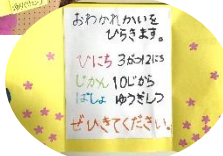 おわかれかいを
ひらきます。
ひにち 3がつ12にち
じかん 10じから
ばしょ ゆうぎしつ
ぜひきてください。